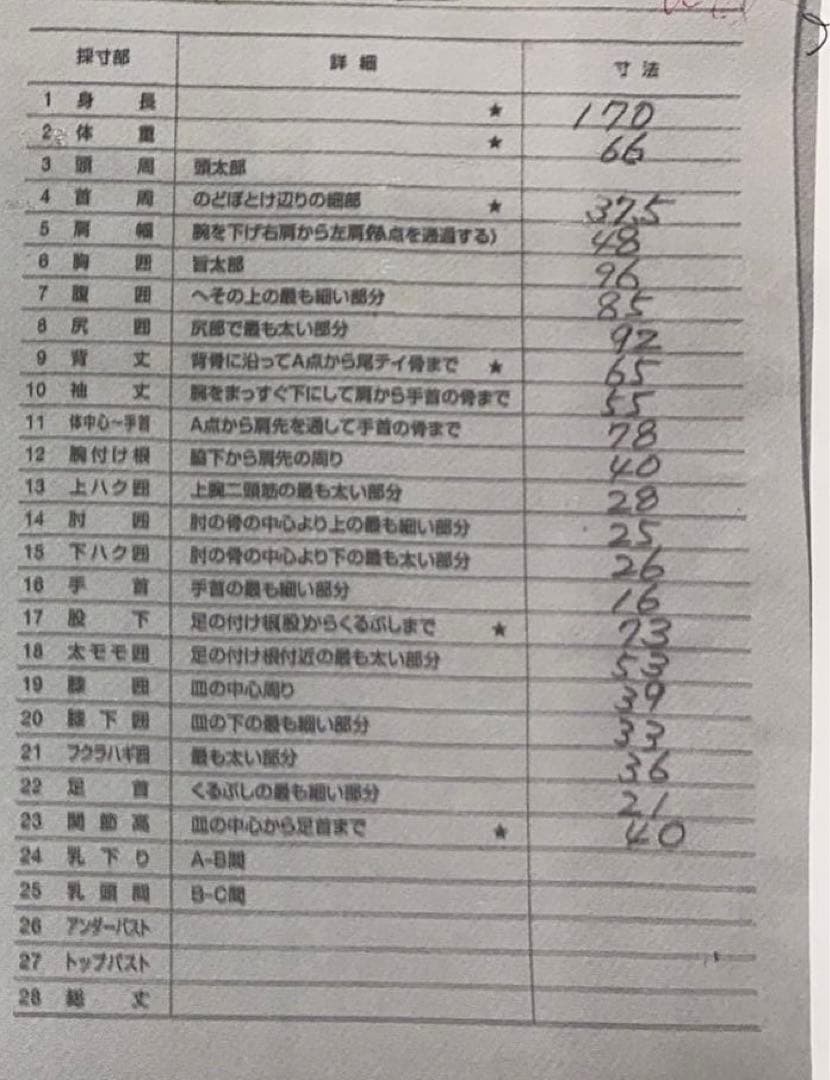 採寸部 詳細 寸法
1 身長 ★ 170
2 体重 ★ 66
3 頭周 頭太部
4 首周 のどぼとけ辺りの細部 ★ 37.5
5 肩幅 腕を下げ右肩から左肩(A点を通過する) 48
6 胸囲 旨太部 96
7 腹囲 へその上の最も細い部分 85
8 尻囲 尻部で最も太い部分 92
9 背丈 背骨に沿ってA点から尾テイ骨まで ★ 65
10 袖丈 腕をまっすぐ下にして肩から手首の骨まで 55
11 体中心〜手首 A点から肩先を通して手首の骨まで 78
12 腕付け根 脇下から肩先の周り 40
13 上ハク囲 上腕二頭筋の最も太い部分 28
14 肘囲 肘の骨の中心より上の最も細い部分 25
15 下ハク囲 肘の骨の中心より下の最も太い部分 26
16 手首 手首の最も細い部分 16
17 股下 足の付け根(股)からくるぶしまで ★ 73
18 太モモ囲 足の付け根付近の最も太い部分 53
19 膝囲 皿の中心周り 39
20 膝下囲 皿の下の最も細い部分 33
21 フクラハギ囲 最も太い部分 36
22 足首 くるぶしの最も細い部分 21
23 関節高 皿の中心から足首まで ★ 40
24 乳下り A-B間
25 乳頭間 B-C間
26 アンダーバスト
27 トップバスト
28 総丈